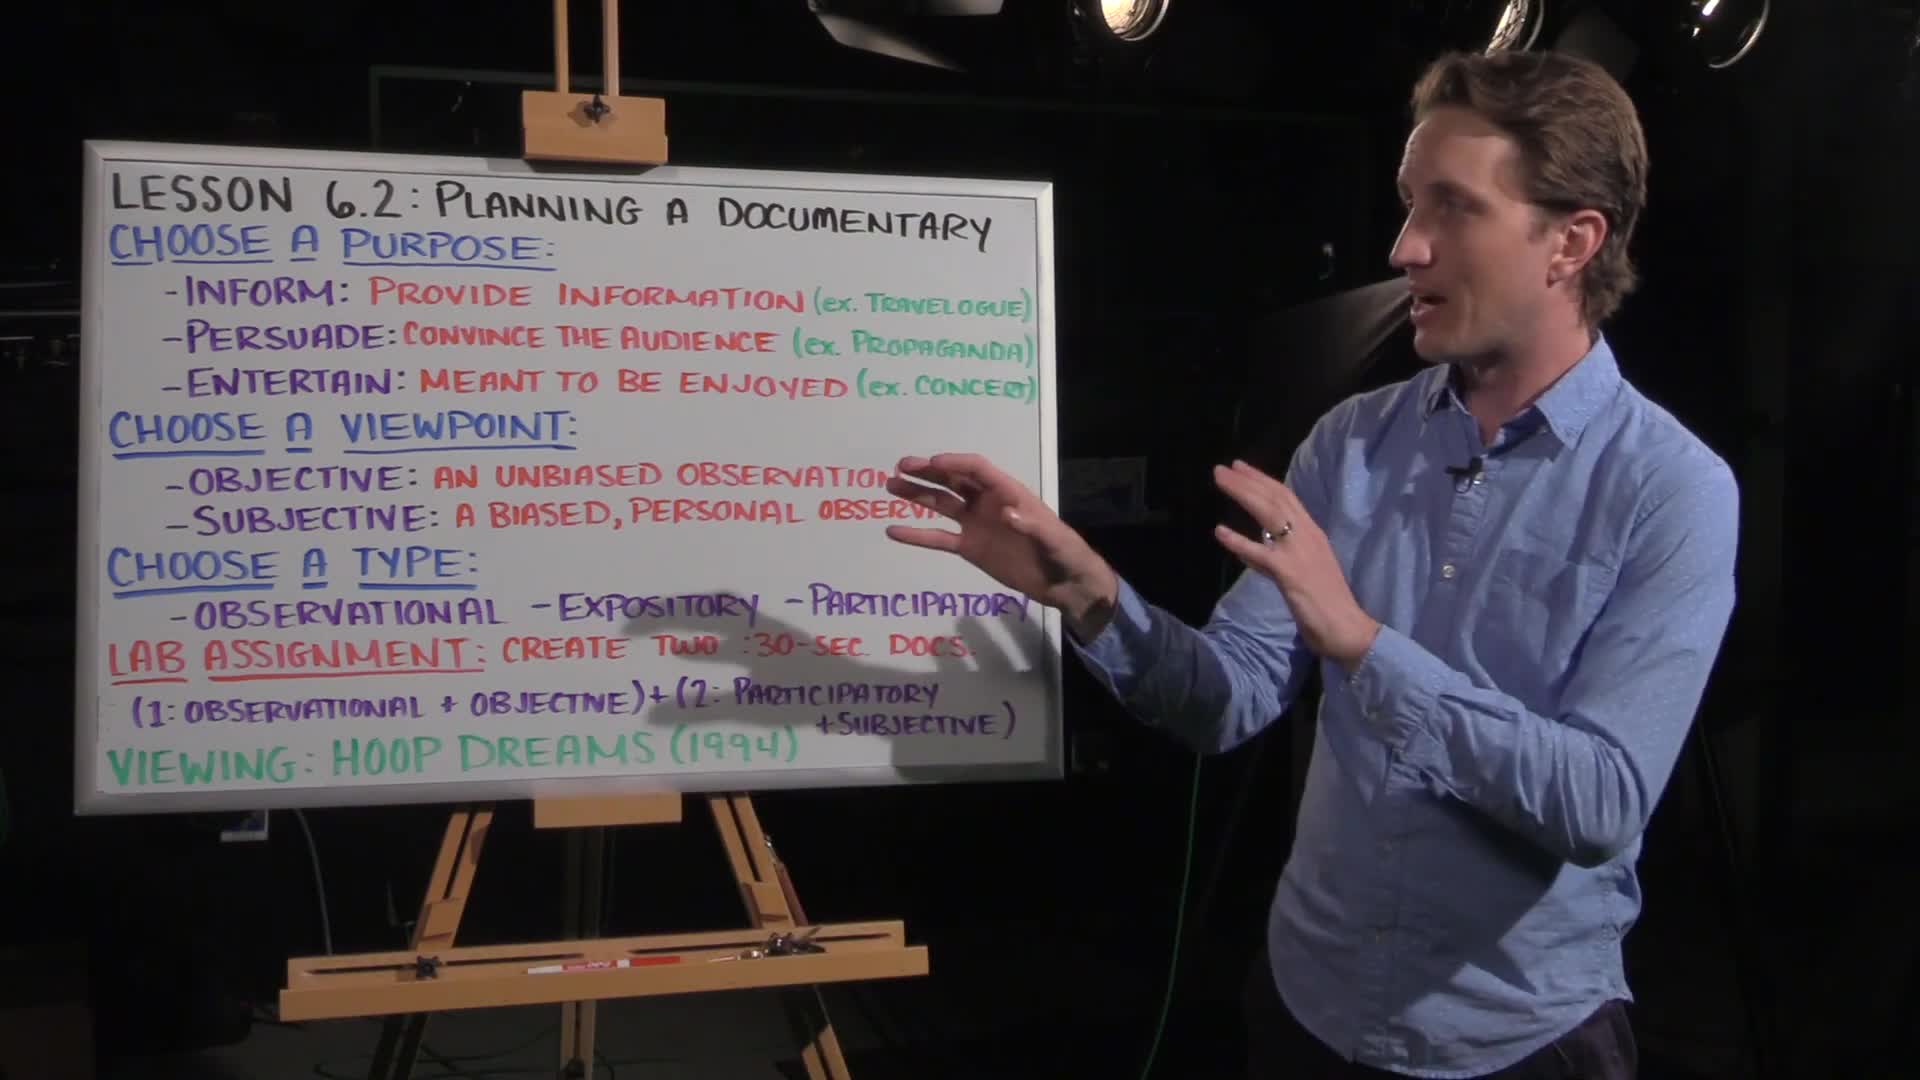 LESSON 6.2: PLANNING A DOCUMENTARY
CHOOSE A PURPOSE:
-INFORM: PROVIDE INFORMATION (ex. TRAVELOGUE)
-PERSUADE: CONVINCE THE AUDIENCE (ex. PROPAGANDA)
-ENTERTAIN: MEANT TO BE ENJOYED (ex. CONCERT)
CHOOSE A VIEWPOINT:
-OBJECTIVE: AN UNBIASED OBSERVATION
-SUBJECTIVE: A BIASED, PERSONAL
CHOOSE A TYPE:
-OBSERVATIONAL -EXPOSITORY -PARTICIPATORY
LAB ASSIGNMENT: CREATE TWO :30-SEC. DOCS.
(1: OBSERVATIONAL + OBJECTIVE) + (2: PARTICIPATORY
+SUBJECTIVE)
VIEWING: HOOP DREAMS (1994)